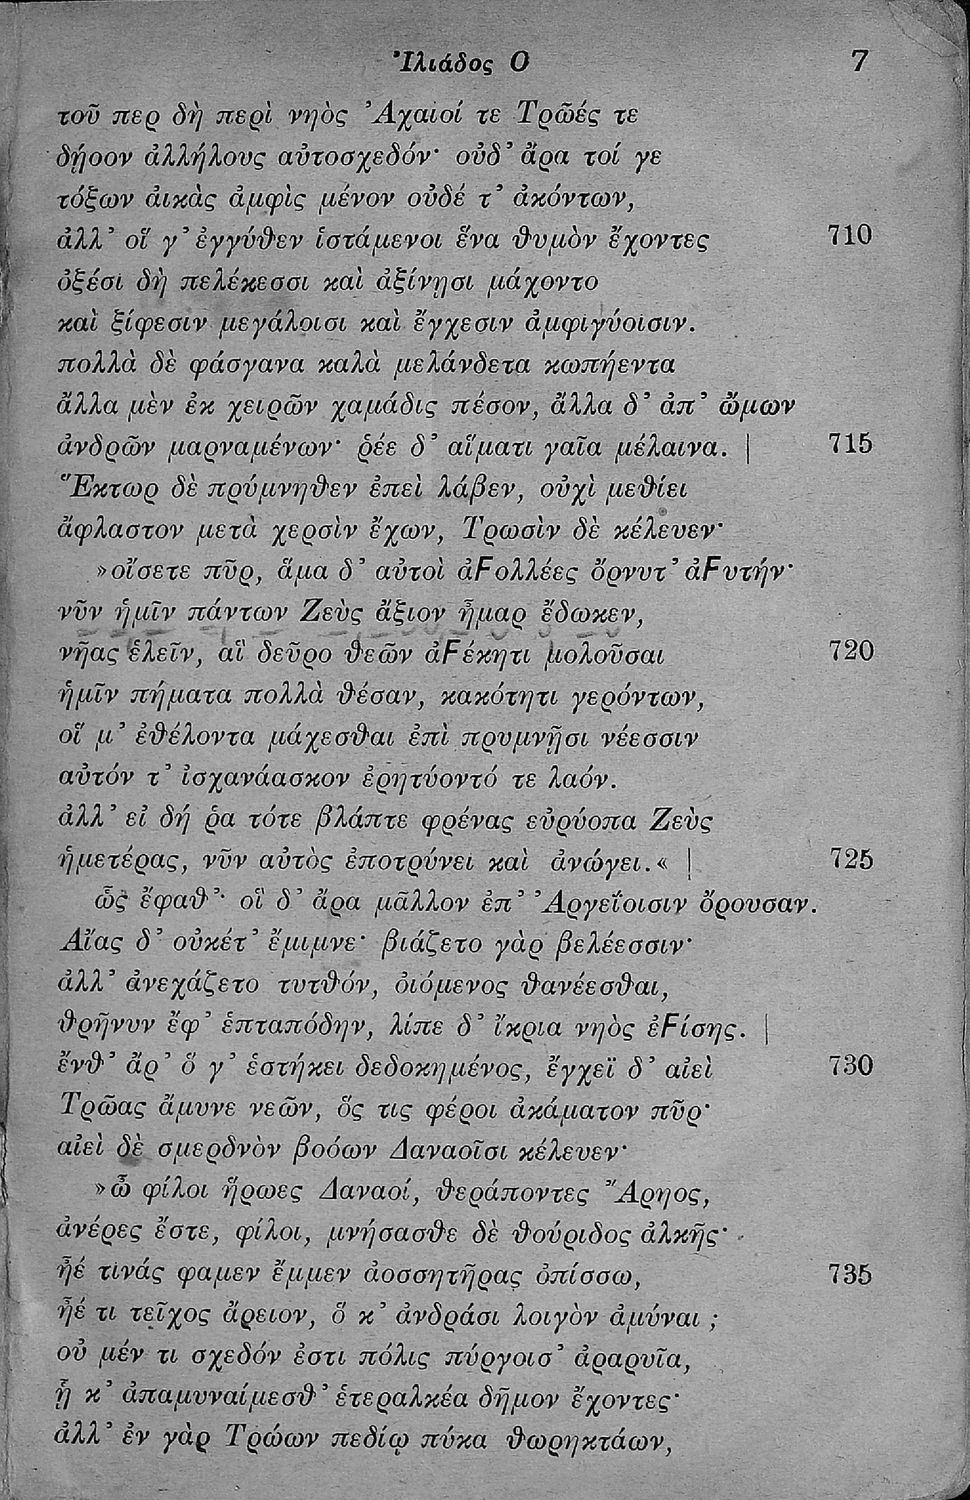 Ἰλιάδος Ο 7
τοῦ περ δὴ περὶ νηὸς Ἀχαιοί τε Τρῶές τε
δῄοον ἀλλήλους αὐτοσχεδόν· οὐδ’ ἄρα τοί γε
τόξων ἀικὰς ἀμφὶς μένον οὐδέ τ’ ἀκόντων,
ἀλλ’ οἵ γ’ ἐγγύθεν ἱστάμενοι ἕνα θυμὸν ἔχοντες 710
ὀξέσι δὴ πελέκεσσι καὶ ἀξίνῃσι μάχοντο
καὶ ξίφεσιν μεγάλοισι καὶ ἔγχεσιν ἀμφιγύοισιν.
πολλὰ δὲ φάσγανα καλὰ μελάνδετα κωπήεντα
ἄλλα μὲν ἐκ χειρῶν χαμάδις πέσον, ἄλλα δ’ ἀπ’ ὤμων
ἀνδρῶν μαρναμένων· ῥέε δ’ αἵματι γαῖα μέλαινα. | 715
Ἕκτωρ δὲ πρύμνηθεν ἐπεὶ λάβεν, οὐχὶ μεθίει
ἄφλαστον μετὰ χερσὶν ἔχων, Τρωσὶν δὲ κέλευεν·
»οἴσετε πῦρ, ἅμα δ’ αὐτοὶ ἀϜολλέες ὄρνυτ’ ἀϜυτήν·
νῦν ἡμῖν πάντων Ζεὺς ἄξιον ἦμαρ ἔδωκεν,
νῆας ἑλεῖν, αἳ δεῦρο θεῶν ἀϜέκητι μολοῦσαι 720
ἡμῖν πήματα πολλὰ θέσαν, κακότητι γερόντων,
οἵ μ’ ἐθέλοντα μάχεσθαι ἐπὶ πρυμνῇσι νέεσσιν
αὐτόν τ’ ἰσχανάασκον ἐρητύοντό τε λαόν.
ἀλλ’ εἰ δή ῥα τότε βλάπτε φρένας εὐρύοπα Ζεὺς
ἡμετέρας, νῦν αὐτὸς ἐποτρύνει καὶ ἀνώγει.« | 725
ὣς ἔφαθ’· οἳ δ’ ἄρα μᾶλλον ἐπ’ Ἀργεΐοισιν ὄρουσαν.
Αἴας δ’ οὐκέτ’ ἔμιμνε· βιάζετο γὰρ βελέεσσιν·
ἀλλ’ ἀνεχάζετο τυτθόν, ὀιόμενος θανέεσθαι,
θρῆνυν ἔφ’ ἑπταπόδην, λίπε δ’ ἴκρια νηὸς ἐϜίσης. |
ἔνθ’ ἄρ’ ὅ γ’ ἑστήκει δεδοκημένος, ἔγχεϊ δ’ αἰεὶ 730
Τρῶας ἄμυνε νεῶν, ὅς τις φέροι ἀκάματον πῦρ·
αἰεὶ δὲ σμερδνὸν βοόων Δαναοῖσι κέλευεν·
»ὦ φίλοι ἥρωες Δαναοί, θεράποντες Ἄρηος,
ἀνέρες ἔστε, φίλοι, μνήσασθε δὲ θούριδος ἀλκῆς·
ἦέ τινάς φαμεν ἔμμεν ἀοσσητῆρας ὀπίσσω, 735
ἦέ τι τεῖχος ἄρειον, ὅ κ’ ἀνδράσι λοιγὸν ἀμύναι ;
οὐ μέν τι σχεδόν ἐστι πόλις πύργοισ’ ἀραρυῖα,
ᾗ κ’ ἀπαμυναίμεσθ’ ἑτεραλκέα δῆμον ἔχοντες·
ἀλλ’ ἐν γὰρ Τρώων πεδίῳ πύκα θωρηκτάων,